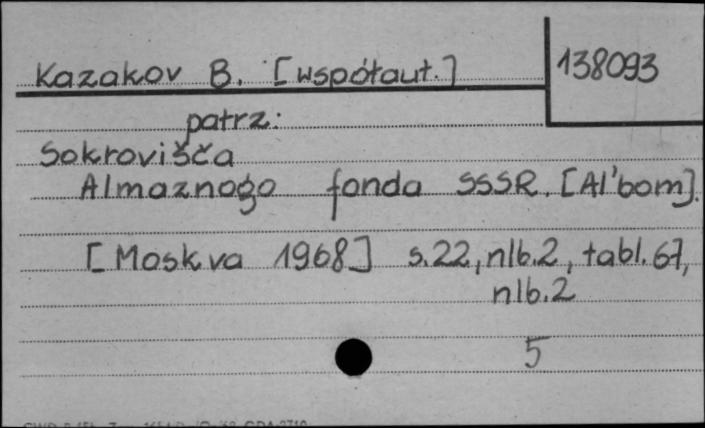 Kazakov B. [współaut.] 138093
patrz:
Sokrovišča
Almaznogo fonda SSSR. [Al'bom].
[Moskva 1968] s.22, nlb.2, tabl.67,
nlb.2
5